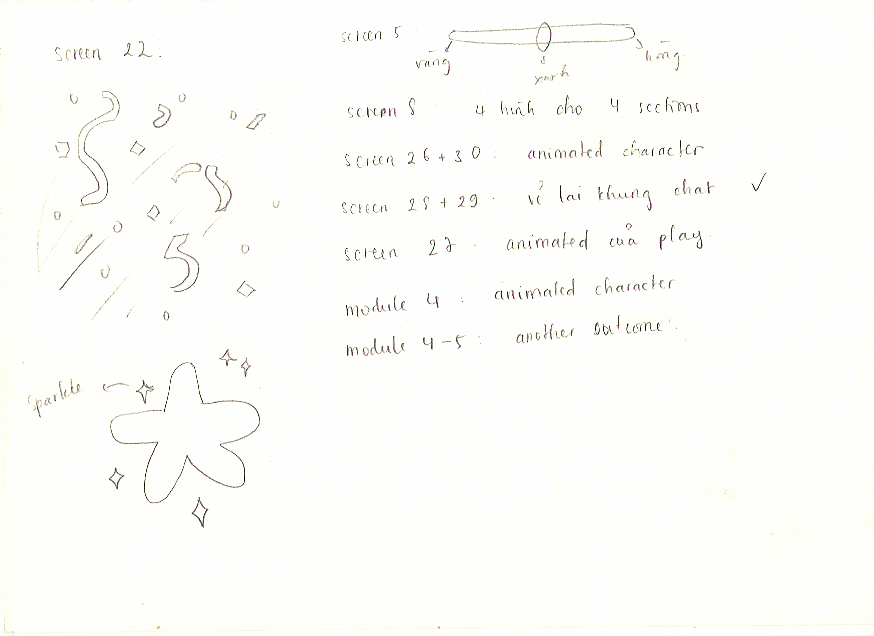 screen 22:
sparkle
screen 5
vàng
xanh
hồng
screen 8 4 hình cho 4 sections
screen 26 + 30 : animated character
screen 28 + 29 . vẽ lại khung chat ✓
screen 27 . animated của play
module 4 : animated character
module 4-5 : another outcome.